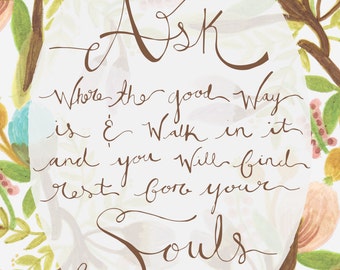 Ask
Where the good Way
is & Walk in it
and you Will find
rest for your
Souls